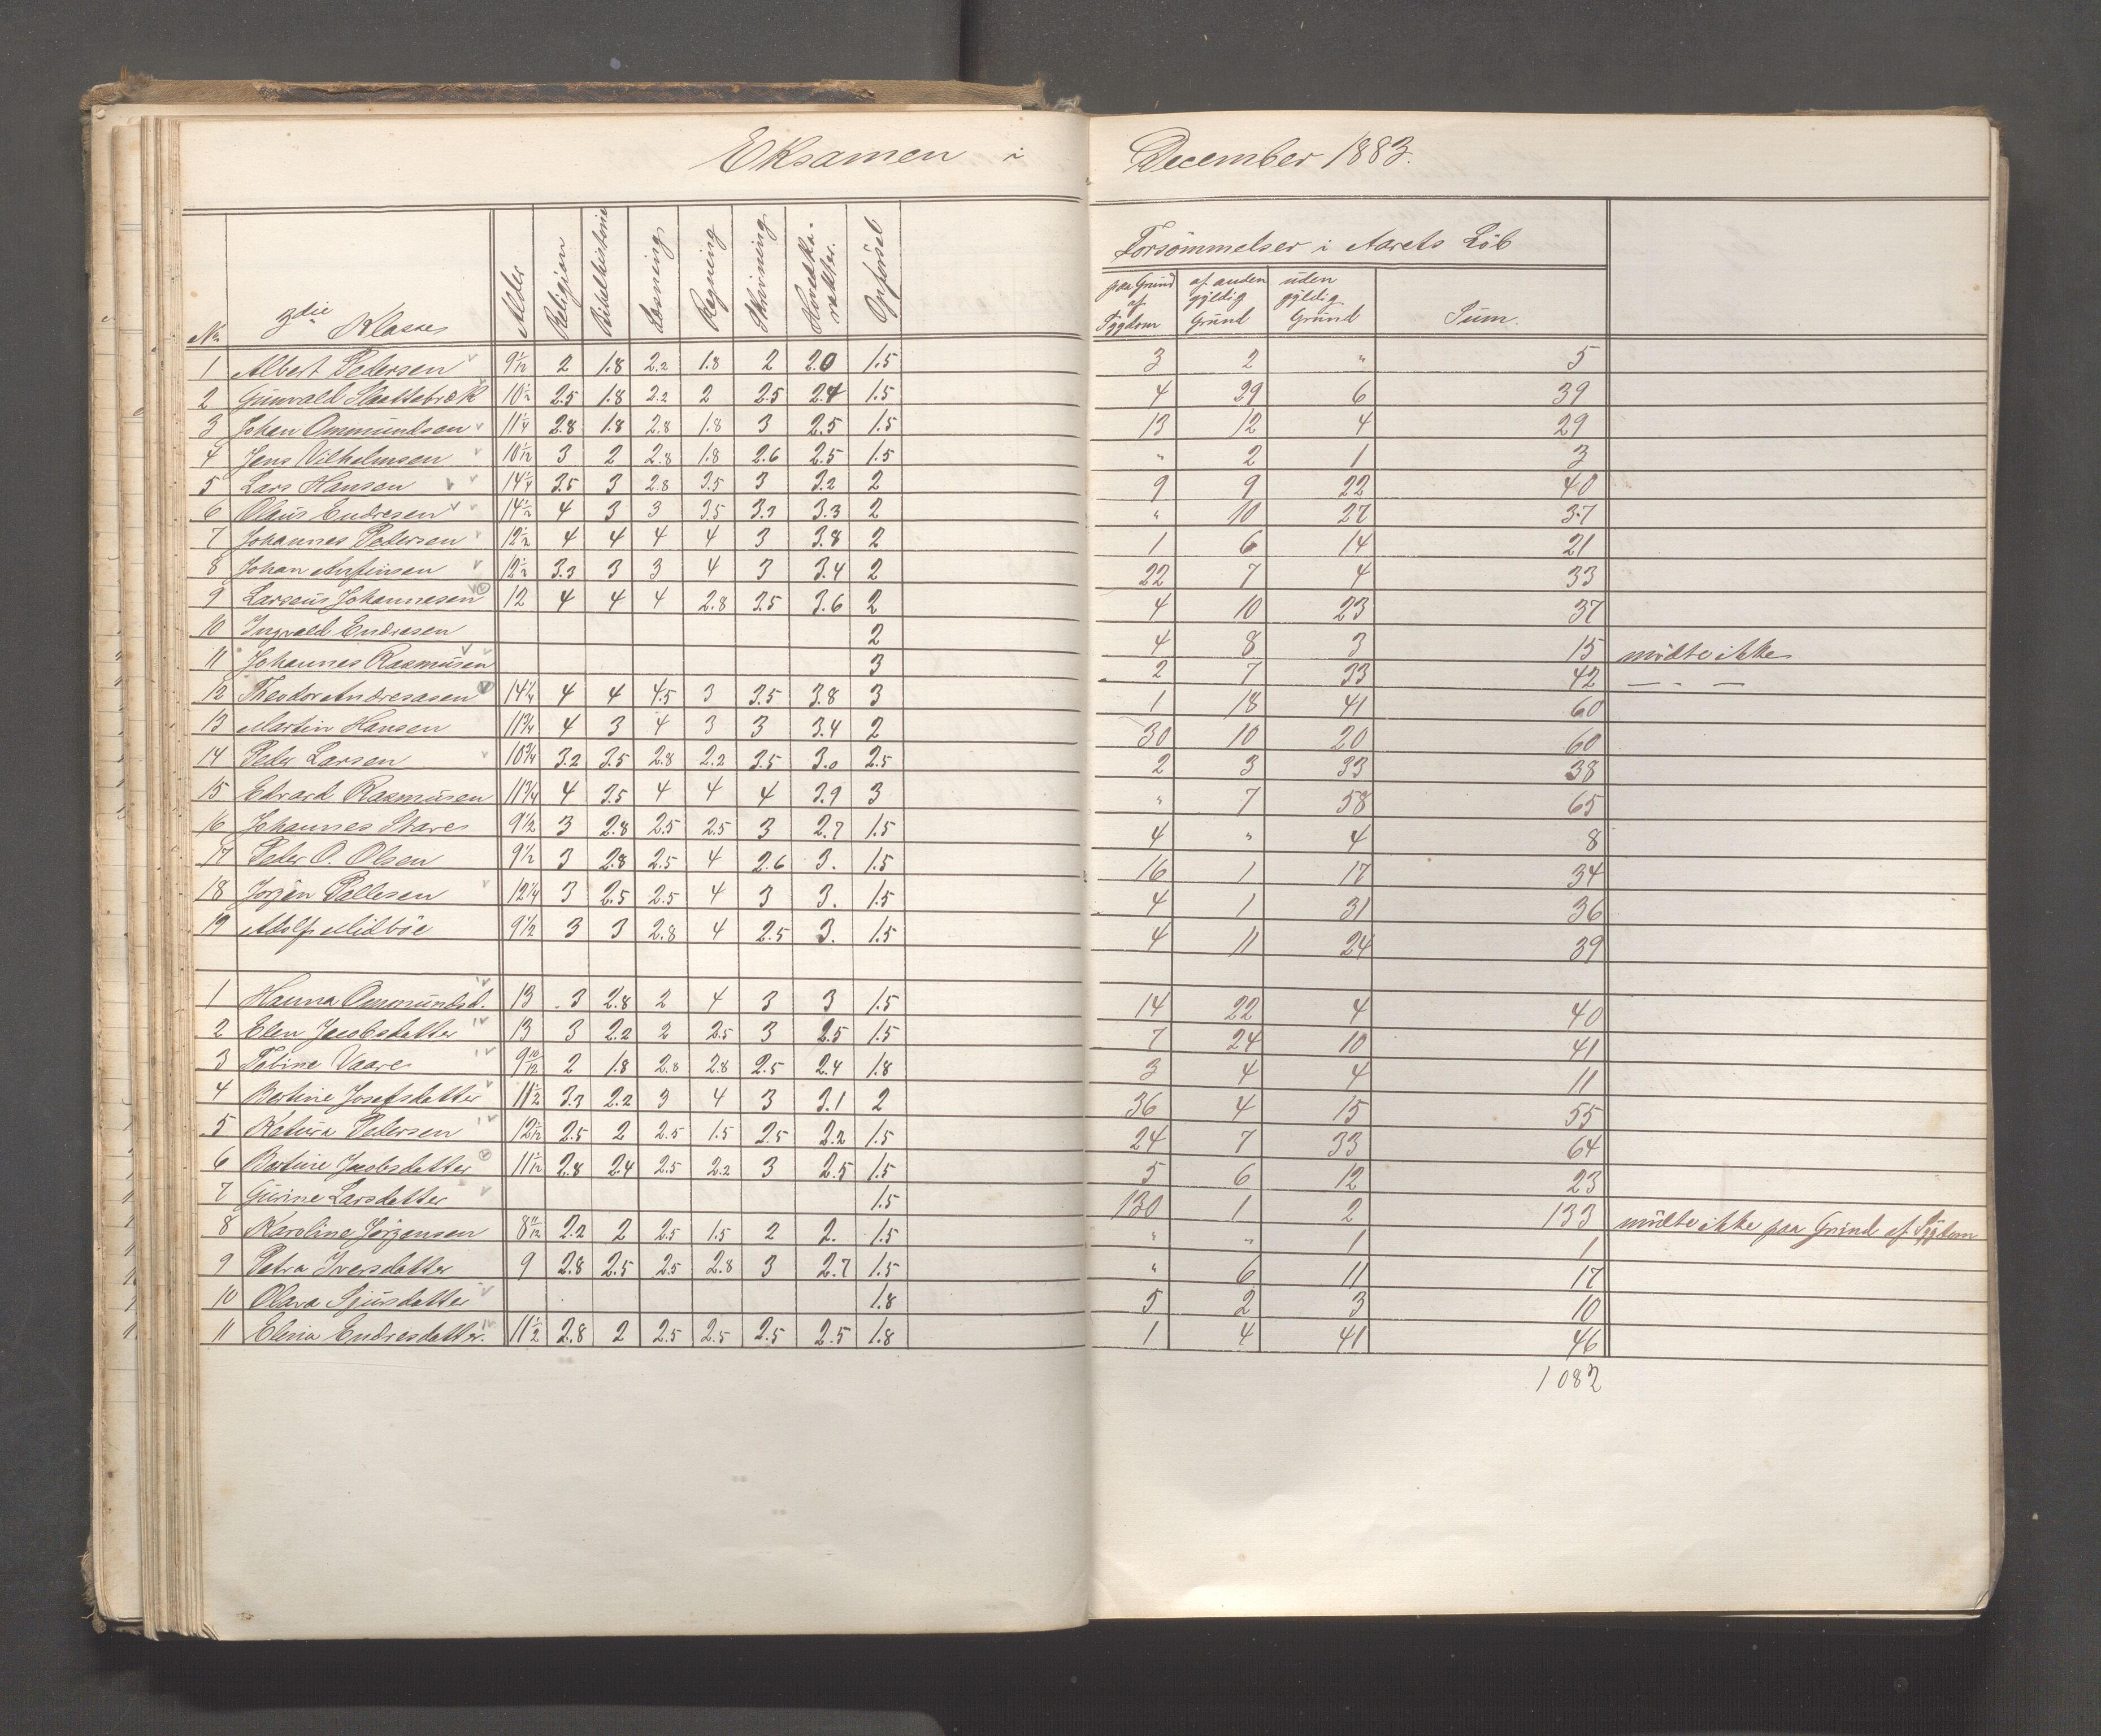 Eksamen i December 1883.
Forsömmelser i Aarets Löb
No. 3die Klasse Alder Religion Bibelhistorie Læsning Regning Skrivning Hovedka-rakter. Opførsel paa Grund af Sygdom af anden gyldig Grund uden gyldig Grund Sum.
1 Albert Pedersen 9 1/12 2 1.8 2.2 1.8 2 2.0 1.5 3 2 " 5
2 Gunvald Slættebræk 10 1/2 2.5 1.8 2.2 2 2.5 2.4 1.5 4 29 6 39
3 Johan Ommundsen 11 1/4 2.8 1.8 2.8 1.8 3 2.5 1.5 13 12 4 29
4 Jens Vilhelmsen 10 1/12 3 2 2.8 1.8 2.6 2.5 1.5 " 2 1 3
5 Lars Hansen 14 1/4 3.5 3 2.8 3.5 3 3.2 2 9 9 22 40
6 Olaus Endresen 14 1/2 4 3 3 3.5 3.3 3.3 2 " 10 27 37
7 Johannes Pedersen 12 1/2 4 4 4 4 3 3.8 2 1 6 14 21
8 Johan 12 1/2 3.3 3 3 4 3 3.4 2 22 7 4 33
9 Larseus Johannesen 12 4 4 4 2.8 3.5 3.6 2 4 10 23 37
10 Ingvald Endresen 2 4 8 3 15 mödte ikke
11 Johannes Rasmusen 3 2 7 33 42 — " —
12 Theodor Andreasen 14 1/4 4 4 4.5 3 3.5 3.8 3 1 18 41 60
13 Martin Hansen 11 3/4 4 3 4 3 3 3.4 2 30 10 20 60
14 Peder Larsen 10 3/4 3.2 3.5 2.8 2.2 3.5 3.0 2.5 2 3 33 38
15 Edvard Rasmusen 11 3/4 4 3.5 4 4 4 3.9 3 " 7 58 65
16 Johannes Stare 9 1/2 3 2.8 2.5 2.5 3 2.7 1.5 4 " 4 8
17 Peder O. Olsen 9 1/2 3 2.8 2.5 4 2.6 3. 1.5 16 1 17 34
18 Jörgen Pallesen 12 1/4 3 2.5 2.5 4 3 3. 1.5 4 1 31 36
19 Adolf Midböe 9 1/2 3 3 2.8 4 2.5 3. 1.5 4 11 24 39
1 Hanna Ommundsd. 13 3 2.8 2 4 3 3 1.5 14 22 4 40
2 Elen Jacobsdatter 13 3 2.2 2 2.5 3 2.5 1.5 7 24 10 41
3 Tobine Vaare 9 10/12 2 1.8 2.8 2.8 2.5 2.4 1.8 3 4 4 11
4 Bertine Josefsdatter 11 1/2 3.3 2.2 3 4 3 3.1 2 36 4 15 55
5 Katinka Pedersen 12 1/12 2.5 2 2.5 1.5 2.5 2.2 1.5 24 7 33 64
6 Bertine Jacobsdatter 11 1/12 2.8 2.4 2.5 2.2 3 2.5 1.5 5 6 12 23
7 Gurine Larsdatter 1.5 130 1 2 133 mödte ikke paa Grund af Sygdom
8 Karoline Jörgensen 8 11/12 2.2 2 2.5 1.5 2 2. 1.5 " " 1 1
9 Petra Iversdatter 9 2.8 2.5 2.5 2.8 3 2.7 1.5 " 6 11 17
10 Olava Sjursdatter 1.8 5 2 3 10
11 Elena Endresdatter. 11 1/2 2.8 2 2.5 2.5 2.5 2.5 1.8 1 4 41 46
1082